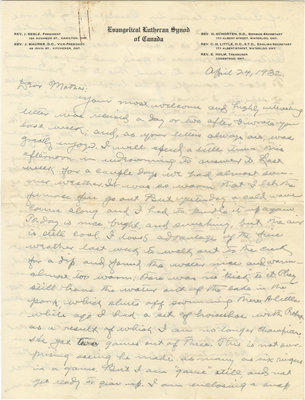 Evangelical Lutheran Synod
of Canada
REV. J. REBLE, PRESIDENT
REV. J. MAURER, D.D., VICE-PRESIDENT
REV. H. SCHORTEN, D.D.,
REV. C. H. LITTLE, D.D., S.T.D., ENGLISH SECRETARY
April 24, 1932
Dear Mother:
Your most welcome and highly interesting
letter was received a day or two after I wrote you
last week; and, as your letters always are, was
greatly enjoyed. I will spend a little time this
afternoon in endeavoring to answer it. Last
week for a couple days we had almost sum-
mer weather. It was so warm that I let the
furnace fire go out. But yesterday a cold wave
came along and I had to kindle it up again.
Today is nice, bright and sunshiny, but the air
is still cool. I took advantage of the fine
weather last week to walk over to the creek
for a dip, and found the water nice and warm -
almost too warm. There was no kick to it. They
still have the water out of the lake in the
park, which shuts off swimming there. A little
while ago I had a set of horseshoe with
as a result of which I am no longer champion.
He got two games out of three. This is not sur-
prising seeing he made as many as six ringers
in a game. But I am 'game' still, and not
yet ready to give up. I am enclosing a snap